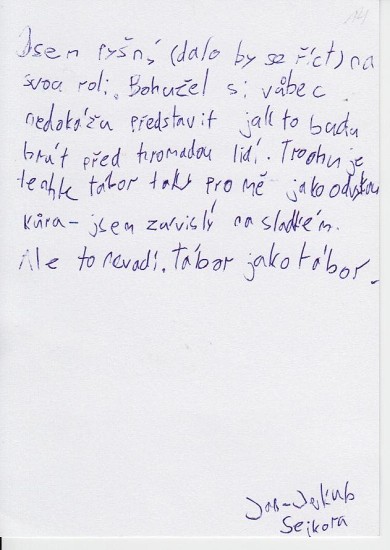 Jsem pyšný (dalo by se říct) na
svou roli. Bohužel si vůbec
nedokážu představit jak to budu
hrát před hromadou lidí. Trochu je
tenhle tábor taky pro mě jako odvykací
kůra - jsem závislý na sladkém.
Ale to nevadí. Tábor jako tábor.
Jan-Jakub
Sejkora